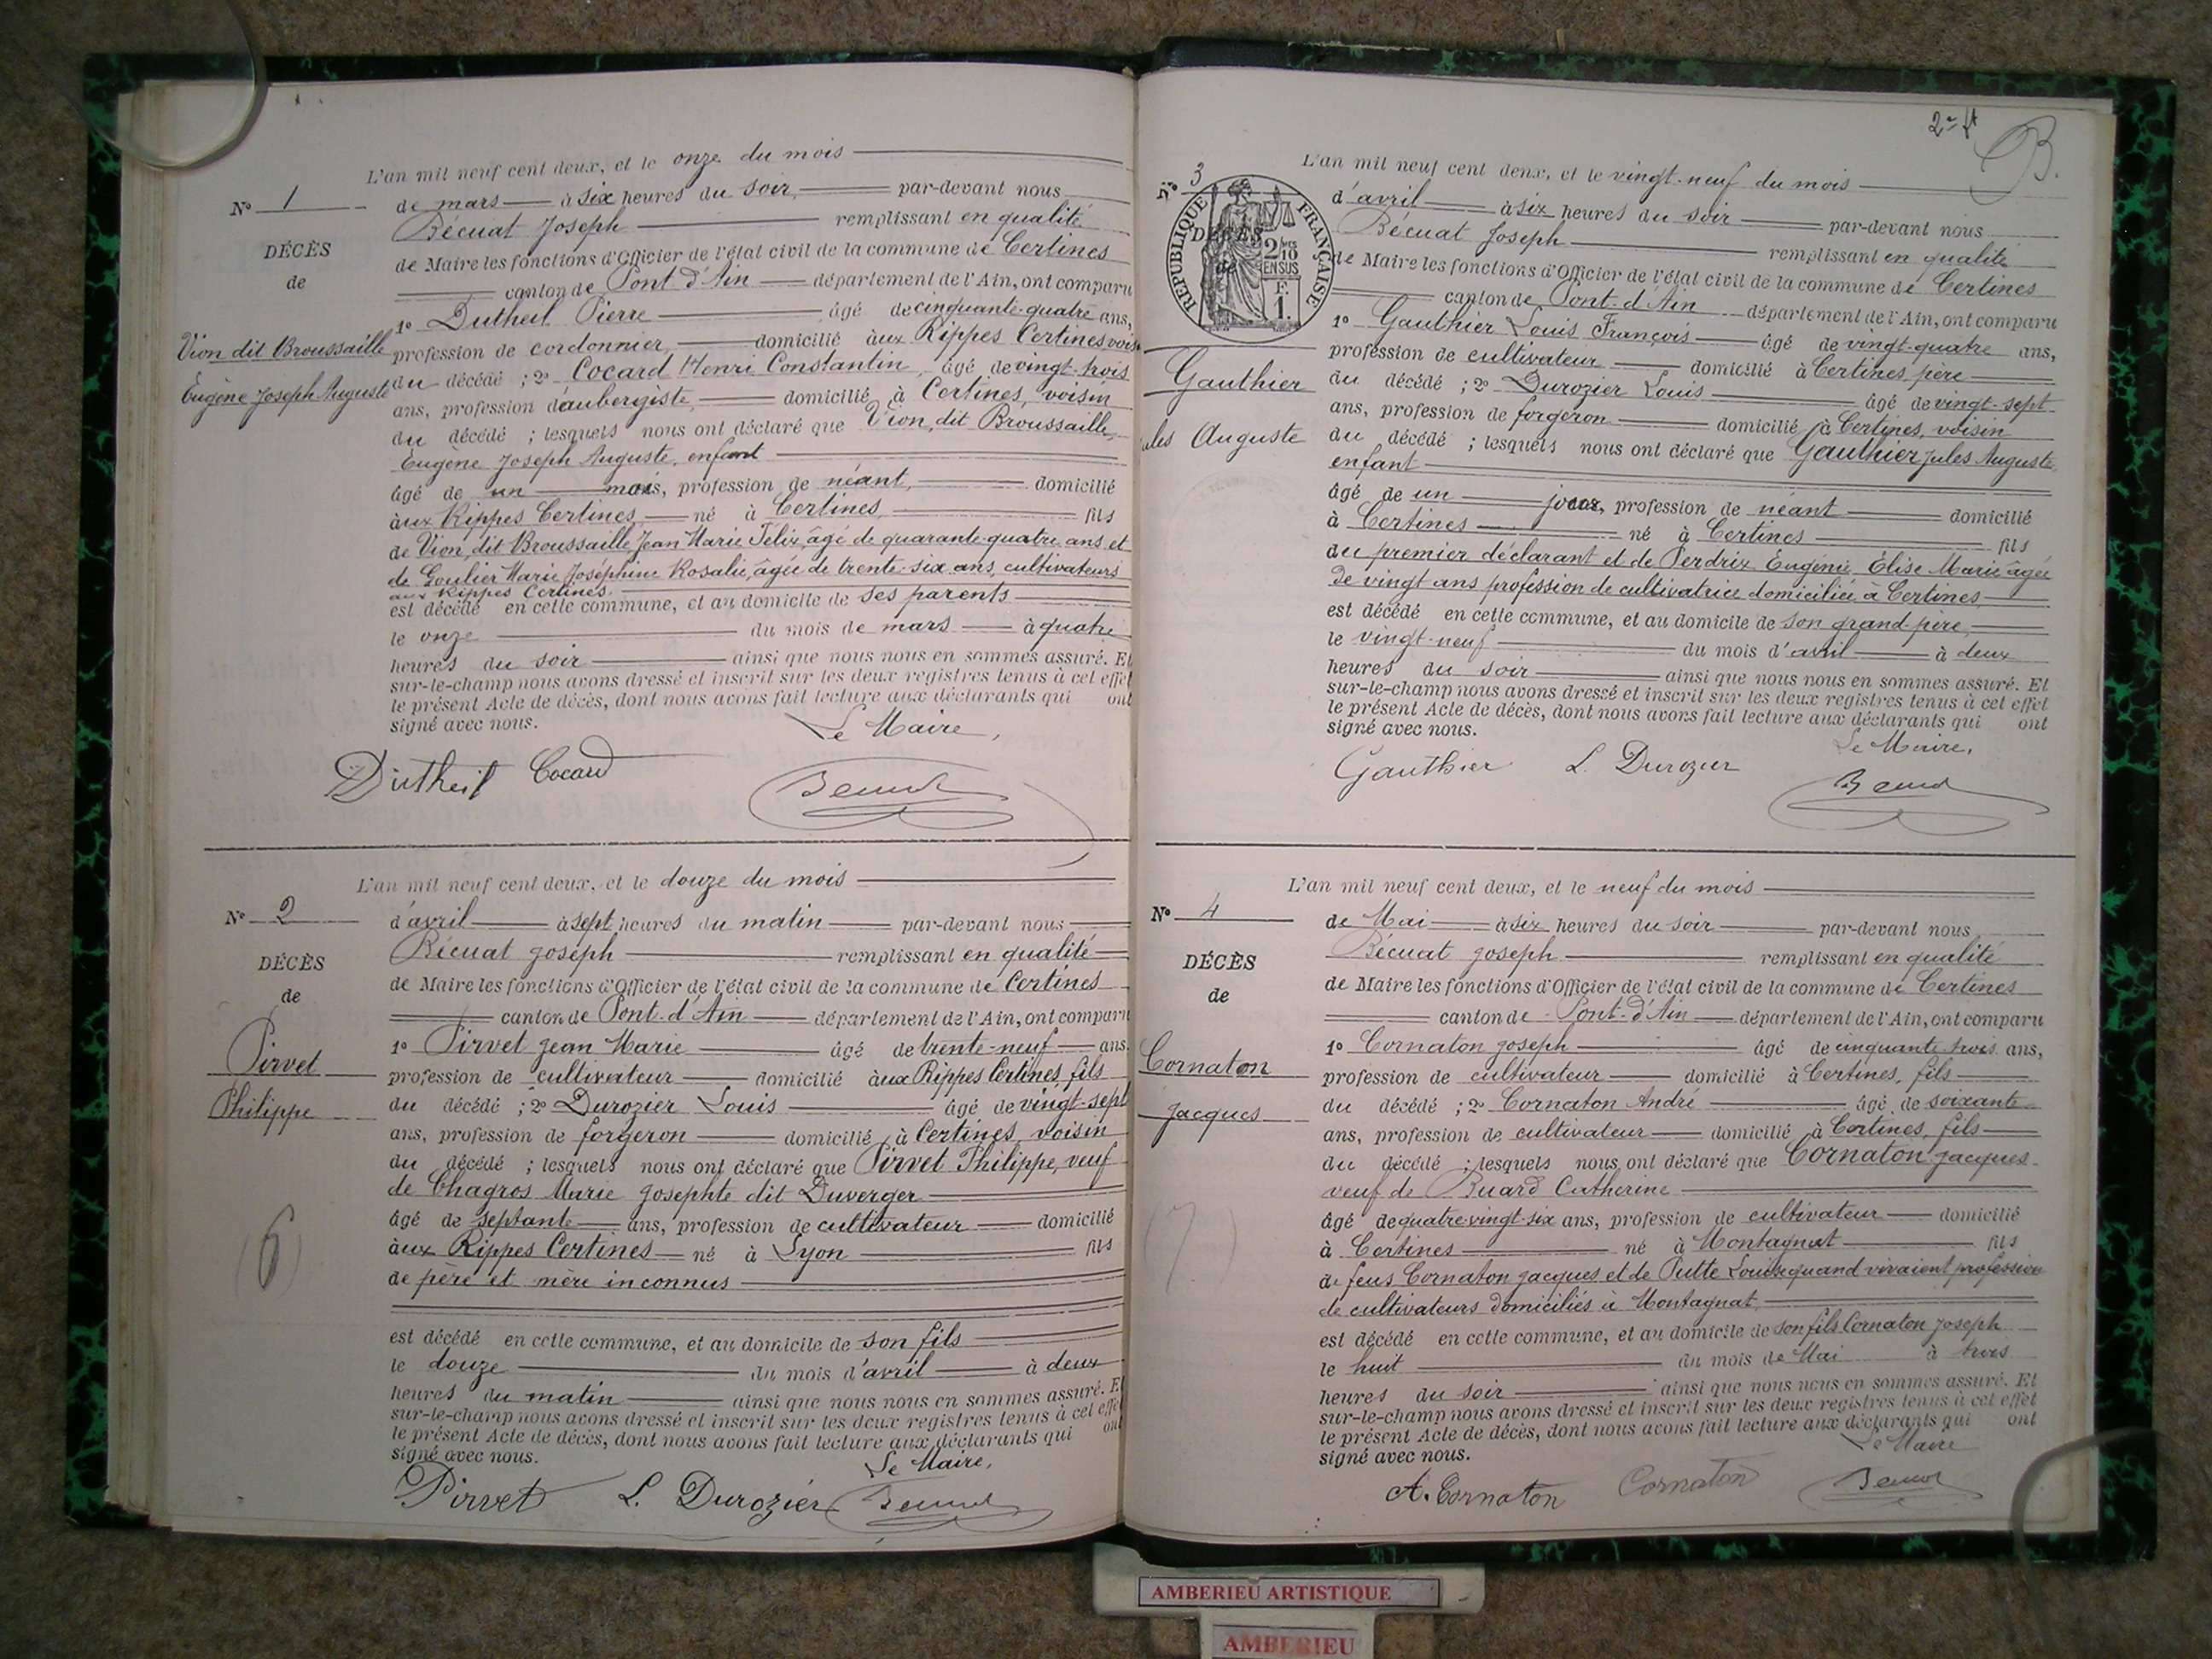 L'an mil neuf cent deux, et le onze du mois
N° 1
de mars à six heures du soir, par-devant nous
Bécuat Joseph remplissant en qualité
DÉCÈS
de Maire les fonctions d'Officier de l'état civil de la commune de Certines
de
canton de Pont d'Ain département de l'Ain, ont comparu
1° Dutheil Pierre âgé de cinquante-quatre ans,
Vion dit Broussaille
profession de cordonnier, domicilié aux Rippes Certines voisin
Eugène Joseph Auguste
du décédé ; 2° Cocard Henri Constantin, âgé de vingt-trois
ans, profession d'aubergiste, domicilié à Certines, voisin
du décédé ; lesquels nous ont déclaré que Vion, dit Broussaille,
Eugène Joseph Auguste, enfant
âgé de un mois, profession de néant, domicilié
aux Rippes Certines né à Certines fils
de Vion, dit Broussaille Jean Marie Félix, âgé de quarante-quatre ans et
de Goulier Marie Joséphine Rosalie, âgée de trente-six ans, cultivateurs
aux Rippes Certines.
est décédé en cette commune, et au domicile de ses parents
le onze du mois de mars à quatre
heures du soir ainsi que nous nous en sommes assuré. Et
sur-le-champ nous avons dressé et inscrit sur les deux registres tenus à cet effet
le présent Acte de décès, dont nous avons fait lecture aux déclarants qui ont
signé avec nous.
Le Maire,
Dutheil Cocard Bécuat
L'an mil neuf cent deux, et le douze du mois
N° 2
d'avril à sept heures du matin par-devant nous
Bécuat Joseph remplissant en qualité
DÉCÈS
de Maire les fonctions d'Officier de l'état civil de la commune de Certines
de
canton de Pont-d'Ain département de l'Ain, ont comparu
Pirvet
1° Pirvet Jean Marie âgé de trente-neuf ans.
profession de cultivateur domicilié aux Rippes Certines, fils
Philippe
du décédé ; 2° Durozier Louis âgé de vingt-sept
ans, profession de forgeron domicilié à Certines, voisin
du décédé ; lesquels nous ont déclaré que Pirvet Philippe, veuf
de Chagros Marie Josephte dit Duverger
âgé de septante ans, profession de cultivateur domicilié
aux Rippes Certines né à Lyon fils
(6)
de père et mère inconnus
est décédé en cette commune, et au domicile de son fils
le douze du mois d'avril à deux
heures du matin ainsi que nous nous en sommes assuré. Et
sur-le-champ nous avons dressé et inscrit sur les deux registres tenus à cet effet
le présent Acte de décès, dont nous avons fait lecture aux déclarants qui ont
signé avec nous.
Le Maire,
Pirvet L. Durozier Bécuat
B.
L'an mil neuf cent deux, et le vingt-neuf du mois
N° 3
d'avril à six heures du soir par-devant nous
RÉPUBLIQUE FRANÇAISE
2/10 EN SUS
F. 1.
DÉCÈS
de
Bécuat Joseph remplissant en qualité
de Maire les fonctions d'Officier de l'état civil de la commune de Certines
canton de Pont-d'Ain département de l'Ain, ont comparu
1° Gauthier Louis François âgé de vingt-quatre ans,
profession de cultivateur domicilié à Certines père
Gauthier
du décédé ; 2° Durozier Louis âgé de vingt-sept
ans, profession de forgeron domicilié à Certines, voisin
ules Auguste
du décédé ; lesquels nous ont déclaré que Gauthier Jules Auguste,
enfant
âgé de un jour, profession de néant domicilié
à Certines né à Certines fils
du premier déclarant et de Perdrix Eugénie Élise Marie âgée
de vingt ans profession de cultivatrice domiciliée à Certines
est décédé en cette commune, et au domicile de son grand-père,
le vingt-neuf du mois d'avril à deux
heures du soir ainsi que nous nous en sommes assuré. Et
sur-le-champ nous avons dressé et inscrit sur les deux registres tenus à cet effet
le présent Acte de décès, dont nous avons fait lecture aux déclarants qui ont
signé avec nous.
Le Maire,
Gauthier L. Durozier Bécuat
L'an mil neuf cent deux, et le neuf du mois
N° 4
de Mai à six heures du soir par-devant nous
Bécuat Joseph remplissant en qualité
DÉCÈS
de Maire les fonctions d'Officier de l'état civil de la commune de Certines
de
canton de Pont-d'Ain département de l'Ain, ont comparu
Cornaton
1° Cornaton Joseph âgé de cinquante trois ans,
profession de cultivateur domicilié à Certines, fils
Jacques
du décédé ; 2° Cornaton André âgé de soixante
ans, profession de cultivateur domicilié à Certines, fils
du décédé ; lesquels nous ont déclaré que Cornaton Jacques
veuf de Buard Catherine
âgé de quatre-vingt-six ans, profession de cultivateur domicilié
à Certines né à Montagnat fils
(7)
de feus Cornaton Jacques et de Putte Louise quand vivaient profession
de cultivateurs domiciliés à Montagnat
est décédé en cette commune, et au domicile de son fils Cornaton Joseph
le huit du mois de Mai à trois
heures du soir ainsi que nous nous en sommes assuré. Et
sur-le-champ nous avons dressé et inscrit sur les deux registres tenus à cet effet
le présent Acte de décès, dont nous avons fait lecture aux déclarants qui ont
signé avec nous.
Le Maire
A. Cornaton Cornaton Bécuat
AMBERIEU ARTISTIQUE
AMBERIEU